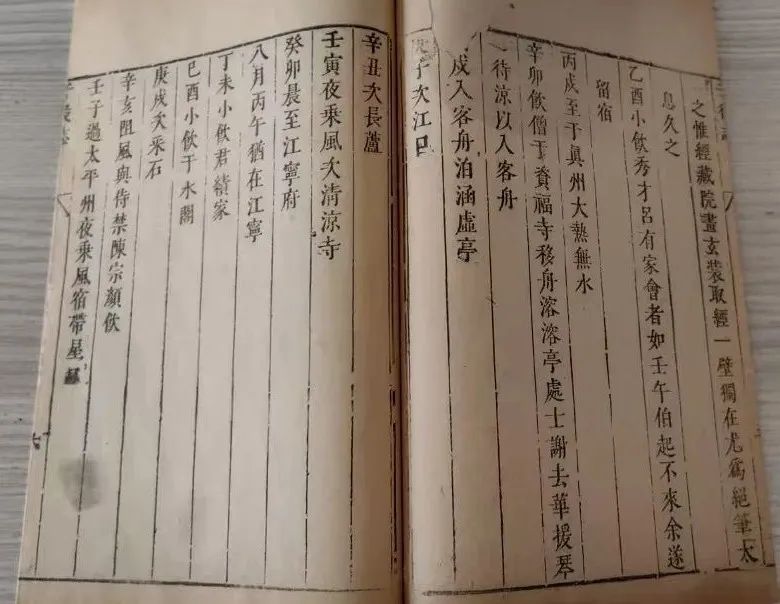 之惟經藏院畫玄裝取經一壁獨在尤爲絕筆太
息久之
乙酉小飲秀才呂有家會者如壬午伯起不來余遂
留宿
丙戌至于眞州大熱無水
辛卯飲僧于資福寺移舟溶溶亭處士謝去華援琴
待涼以入客舟
戌入客舟泊涵虛亭
子次江
辛丑次長蘆
壬寅夜乘風次清涼寺
癸卯晨至江寧府
八月丙午猶在江寧
丁未小飲君績家
巳酉小飲于水閣
庚戌次采石
辛亥阻風與侍禁陳宗顏飲
壬子過太平州夜乘風宿帶星